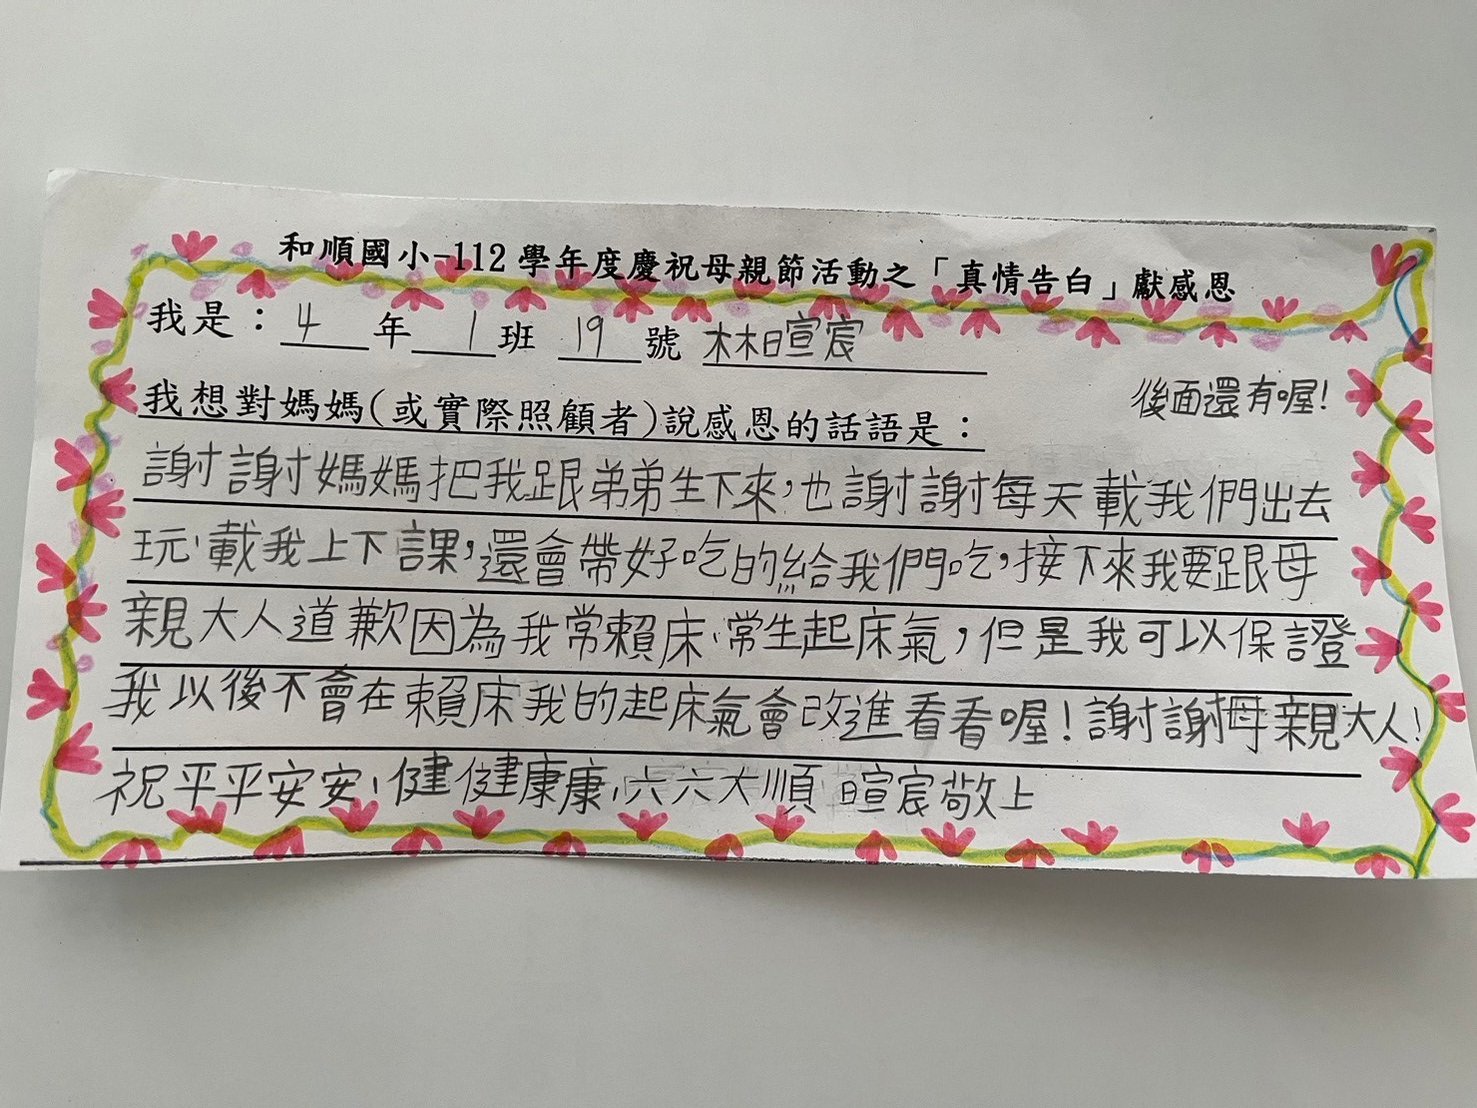 和順國小-112學年度慶祝母親節活動之「真情告白」獻感恩
我是：4年1班 19號 林暄宸
後面還有喔！
我想對媽媽(或實際照顧者)說感恩的話語是：
謝謝媽媽把我跟弟弟生下來，也謝謝每天載我們出去
玩、載我上下課，還會帶好吃的給我們吃，接下來我要跟母
親大人道歉因為我常賴床、常生起床氣，但是我可以保證
我以後不會在賴床我的起床氣會改進看看喔！謝謝母親大人！
祝平平安安、健健康康、六六大順 暄宸敬上